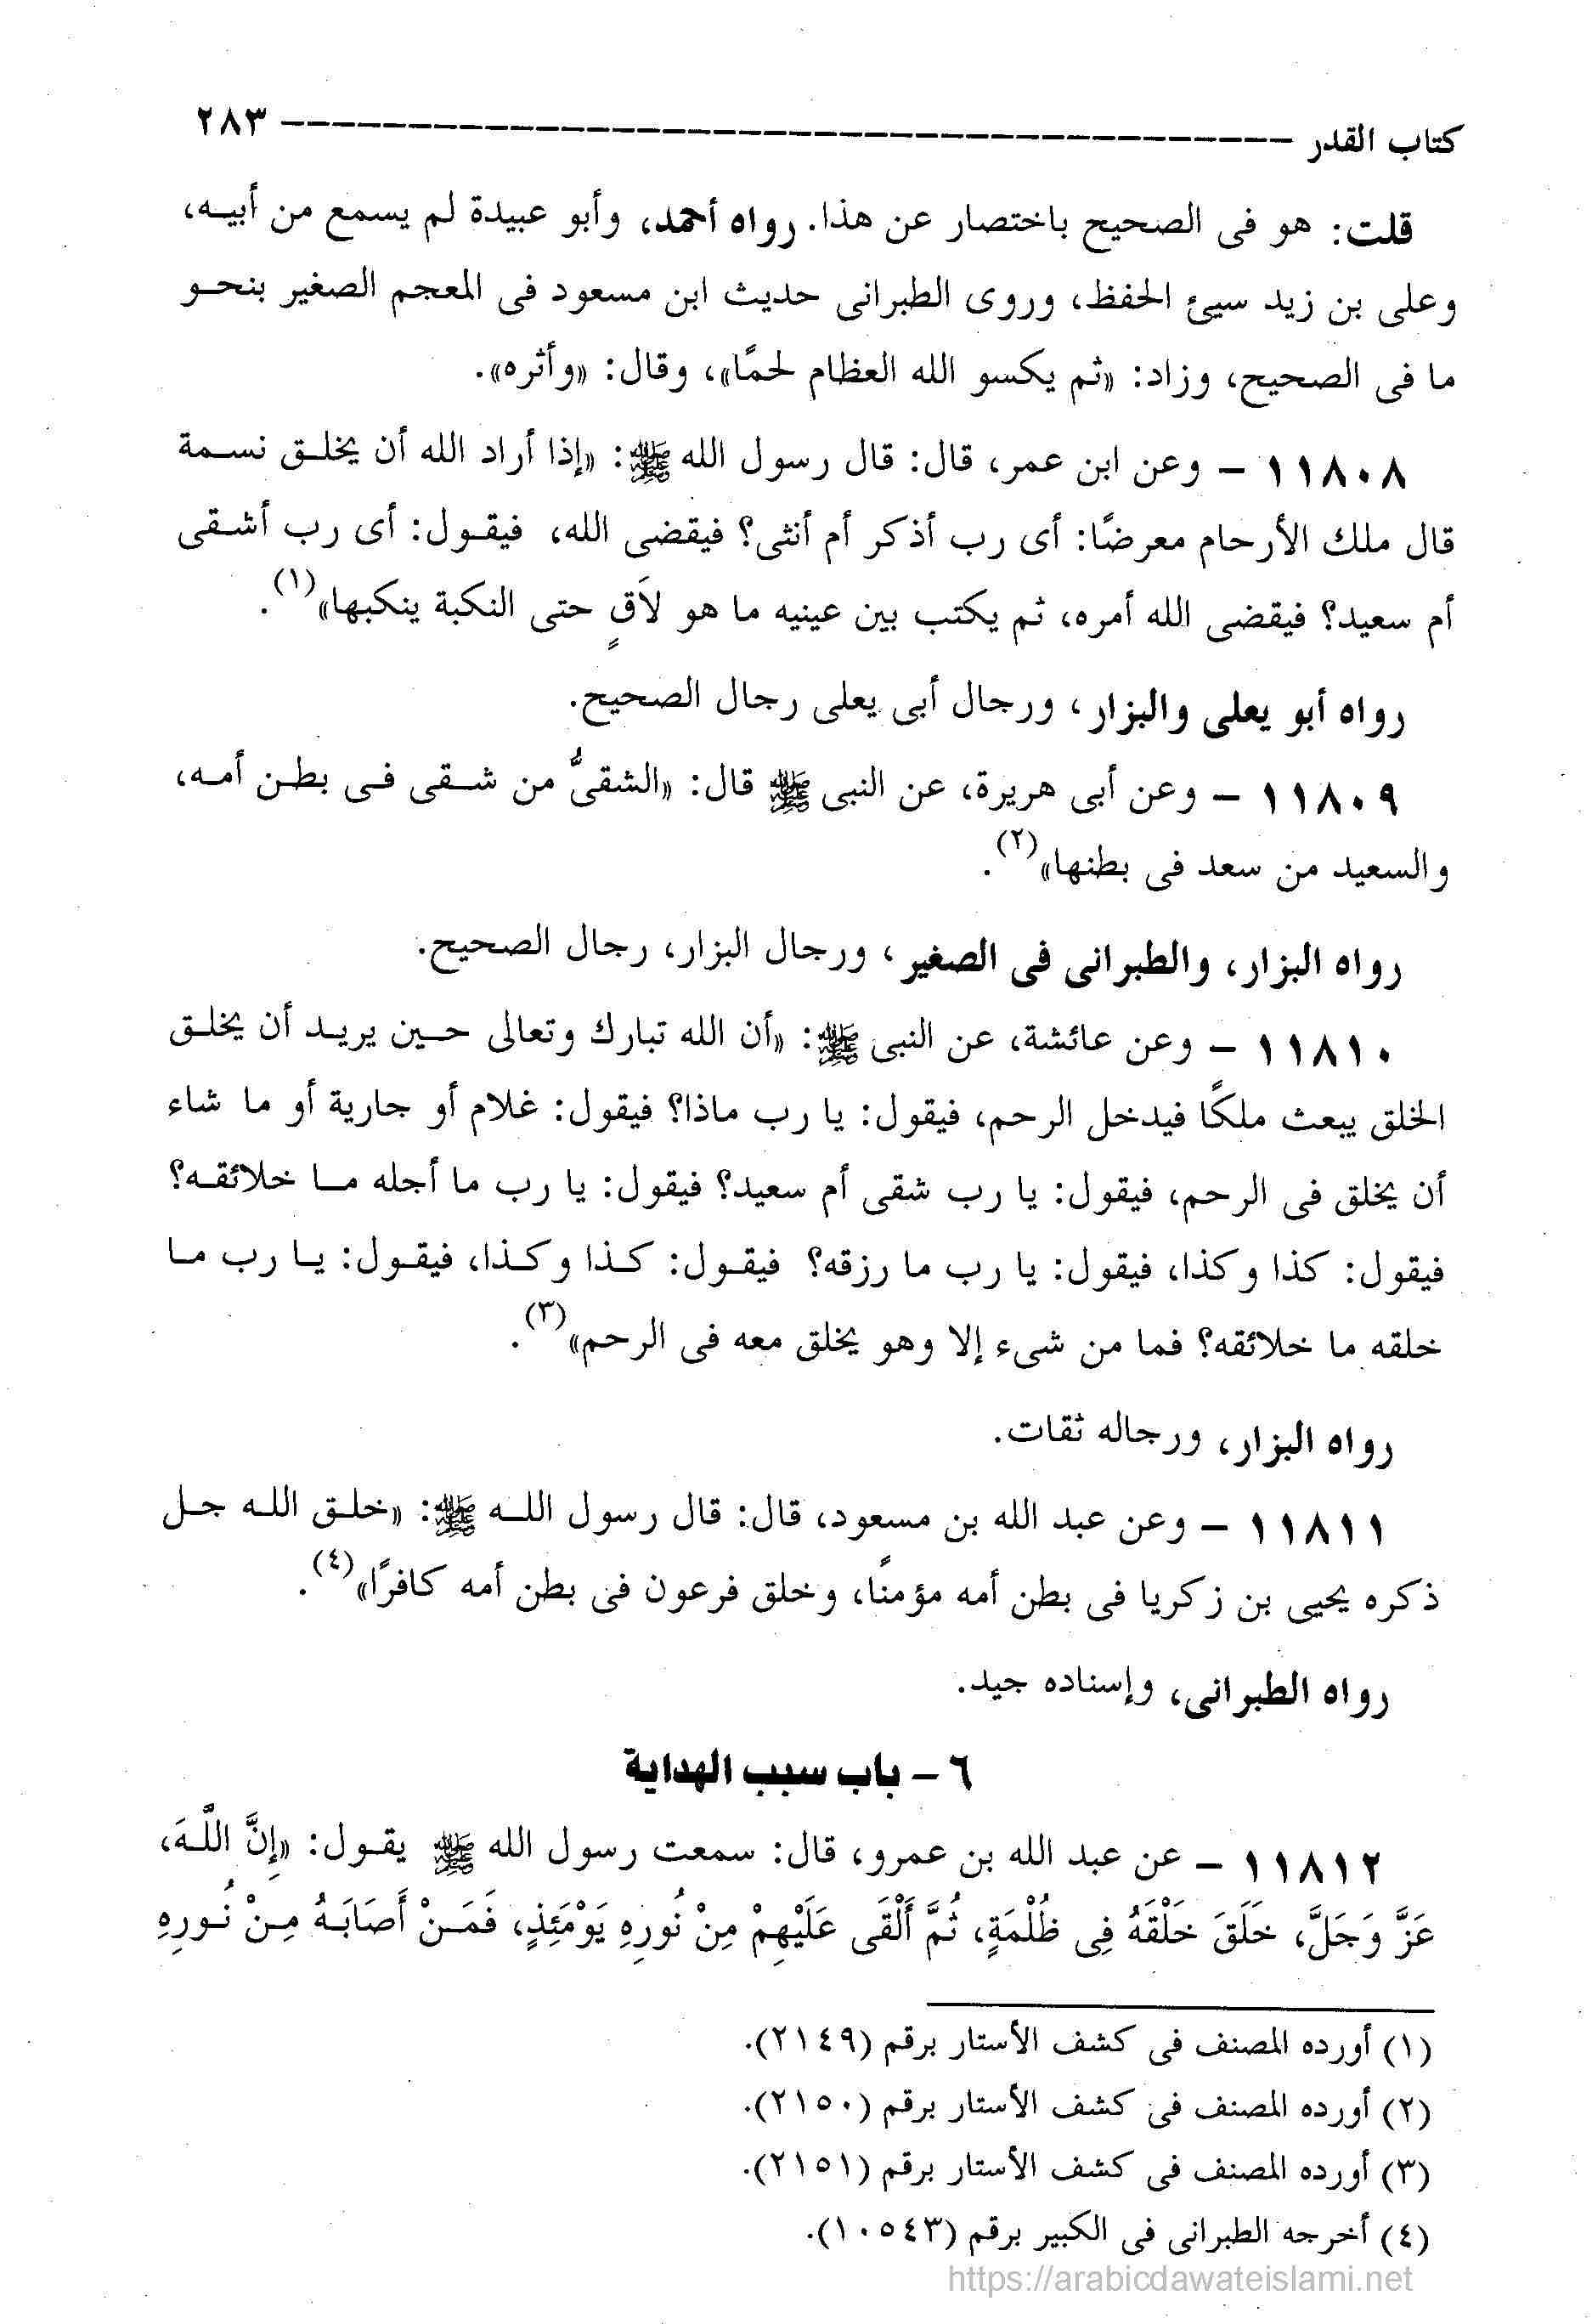 كتاب القدر ---------------------------------------- ٢٨٣
قلت: هو فى الصحيح باختصار عن هذا. رواه أحمد، وأبو عبيدة لم يسمع من أبيه،
وعلى بن زيد سيئ الحفظ، وروى الطبرانى حديث ابن مسعود فى المعجم الصغير بنحو
ما فى الصحيح، وزاد: «ثم يكسو الله العظام لحمًا»، وقال: «وأثره».
١١٨٠٨ – وعن ابن عمر، قال: قال رسول الله ﷺ: «إذا أراد الله أن يخلق نسمة
قال ملك الأرحام معرضًا: أى رب أذكر أم أنثى؟ فيقضى الله، فيقول: أى رب أشقى
أم سعيد؟ فيقضى الله أمره، ثم يكتب بين عينيه ما هو لاَقٍ حتى النكبة ينكبها»(١).
رواه أبو يعلى والبزار، ورجال أبى يعلى رجال الصحيح.
١١٨٠٩ – وعن أبى هريرة، عن النبى ﷺ قال: «الشقىُّ من شقى فى بطن أمه،
والسعيد من سعد فى بطنها»(٢).
رواه البزار، والطبرانى فى الصغير، ورجال البزار، رجال الصحيح.
١١٨١٠ – وعن عائشة، عن النبى ﷺ: «أن الله تبارك وتعالى حين يريد أن يخلق
الخلق يبعث ملكًا فيدخل الرحم، فيقول: يا رب ماذا؟ فيقول: غلام أو جارية أو ما شاء
أن يخلق فى الرحم، فيقول: يا رب شقى أم سعيد؟ فيقول: يا رب ما أجله ما خلائقه؟
فيقول: كذا وكذا، فيقول: يا رب ما رزقه؟ فيقول: كذا وكذا، فيقول: يا رب ما
خلقه ما خلائقه؟ فما من شىء إلا وهو يخلق معه فى الرحم»(٣).
رواه البزار، ورجاله ثقات.
١١٨١١ – وعن عبد الله بن مسعود، قال: قال رسول الله ﷺ: «خلق الله جل
ذكره يحيى بن زكريا فى بطن أمه مؤمنًا، وخلق فرعون فى بطن أمه كافرًا»(٤).
رواه الطبرانى، وإسناده جيد.
٦ – باب سبب الهداية
١١٨١٢ – عن عبد الله بن عمرو، قال: سمعت رسول الله ﷺ يقول: «إِنَّ اللَّهَ،
عَزَّ وَجَلَّ، خَلَقَ خَلْقَهُ فِى ظُلْمَةٍ، ثُمَّ أَلْقَى عَلَيْهِمْ مِنْ نُورِهِ يَوْمَئِذٍ، فَمَنْ أَصَابَهُ مِنْ نُورِهِ
(١) أورده المصنف فى كشف الأستار برقم (٢١٤٩).
(٢) أورده المصنف فى كشف الأستار برقم (٢١٥٠).
(٣) أورده المصنف فى كشف الأستار برقم (٢١٥١).
(٤) أخرجه الطبرانى فى الكبير برقم (١٠٥٤٣).
https://arabicdawateislami.net